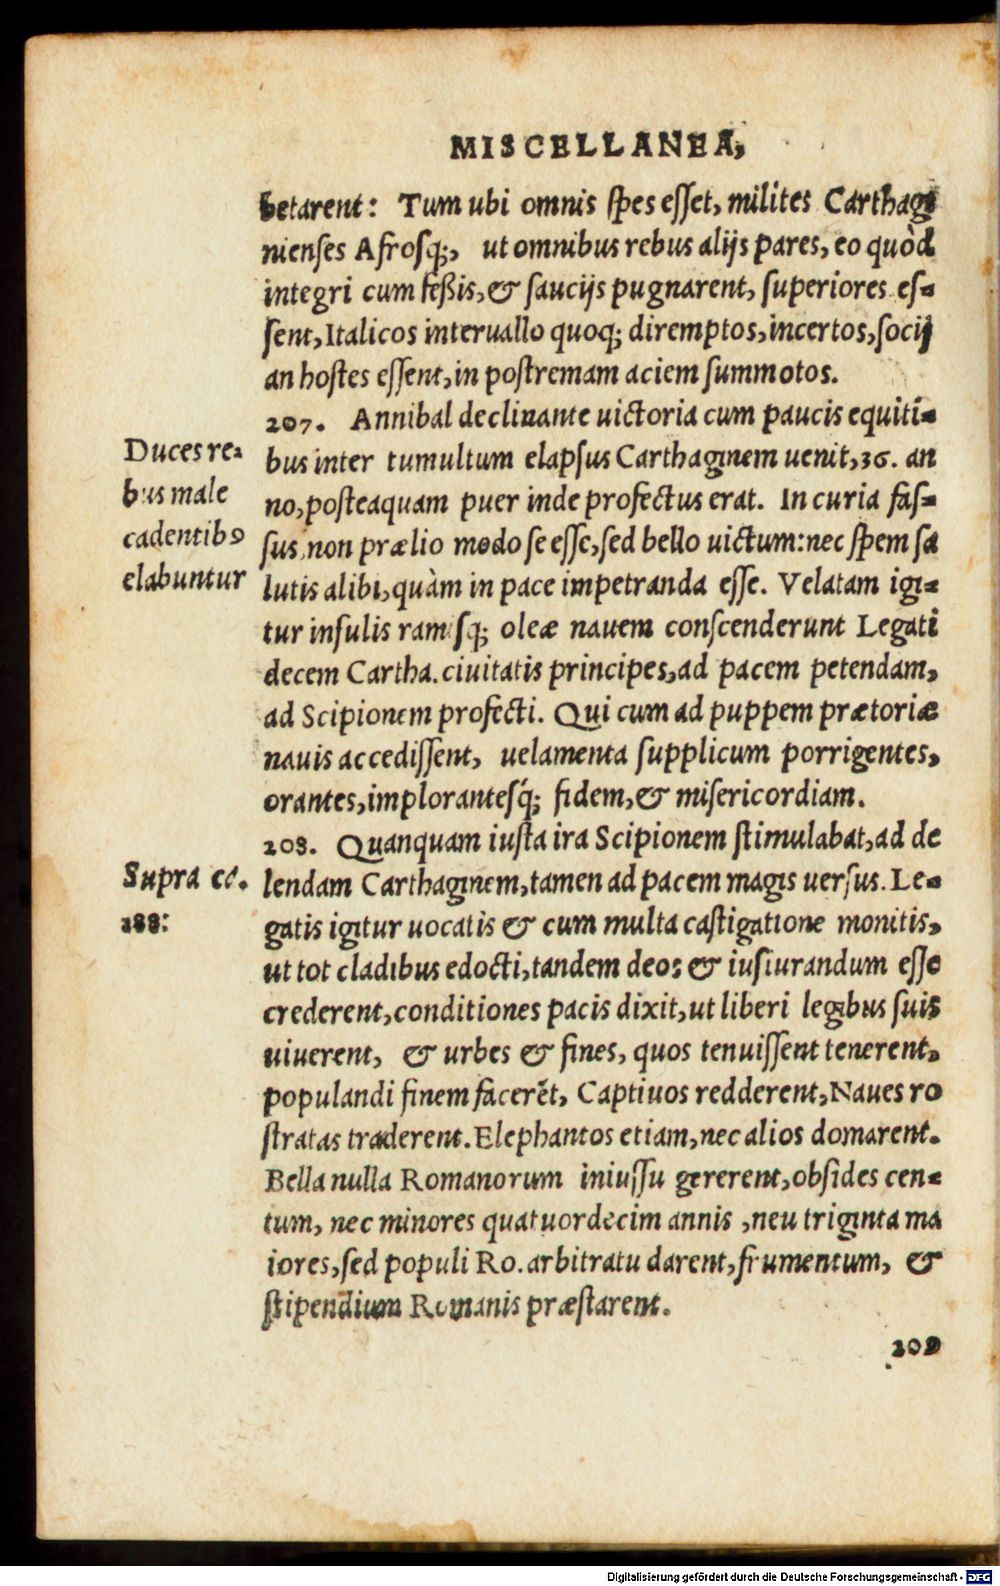 MISCELLANEA,
betarent: Tum ubi omnis ſpes eſſet, milites Carthagi
nienſes Afroſq́;, ut omnibus rebus alijs pares, eo quòd
integri cum feßis, & ſaucijs pugnarent, ſuperiores eſ-
ſent, Italicos interuallo quoq; diremptos, incertos, ſocij
an hoſtes eſſent, in poſtremam aciem ſummotos.
207. Annibal declinante uictoria cum paucis equiti-
bus inter tumultum elapſus Carthaginem uenit, 36. an
no, poſteaquam puer inde profectus erat. In curia faſ-
ſus, non prælio modo ſe eſſe, ſed bello uictum: nec ſpem ſa
lutis alibi, quàm in pace impetranda eſſe. Velatam igi-
tur inſulis ramiſq; oleæ nauem conſcenderunt Legati
decem Cartha. ciuitatis principes, ad pacem petendam,
ad Scipionem profecti. Qui cum ad puppem prætoriæ
nauis accediſſent, uelamenta ſupplicum porrigentes,
orantes, implorantesq́; fidem, & miſericordiam.
Duces re-
bus male
cadentibꝰ
elabuntur
208. Quanquam iuſta ira Scipionem ſtimulabat, ad de
lendam Carthaginem, tamen ad pacem magis uerſus. Le-
gatis igitur uocatis & cum multa caſtigatione monitis,
ut tot cladibus edocti, tandem deos & iuſiurandum eſſe
crederent, conditiones pacis dixit, ut liberi legibus ſuis
uiuerent, & urbes & fines, quos tenuiſſent tenerent,
populandi finem facerēt, Captiuos redderent, Naues ro
ſtratas traderent. Elephantos etiam, nec alios domarent.
Bella nulla Romanorum iniuſſu gererent, obſides cen-
tum, nec minores quatuordecim annis, neu triginta ma
iores, ſed populi Ro. arbitratu darent, frumentum, &
ſtipendium Romanis præſtarent.
Supra ca.
188:
209
Digitalisierung gefördert durch die Deutsche Forschungsgemeinschaft - DFG